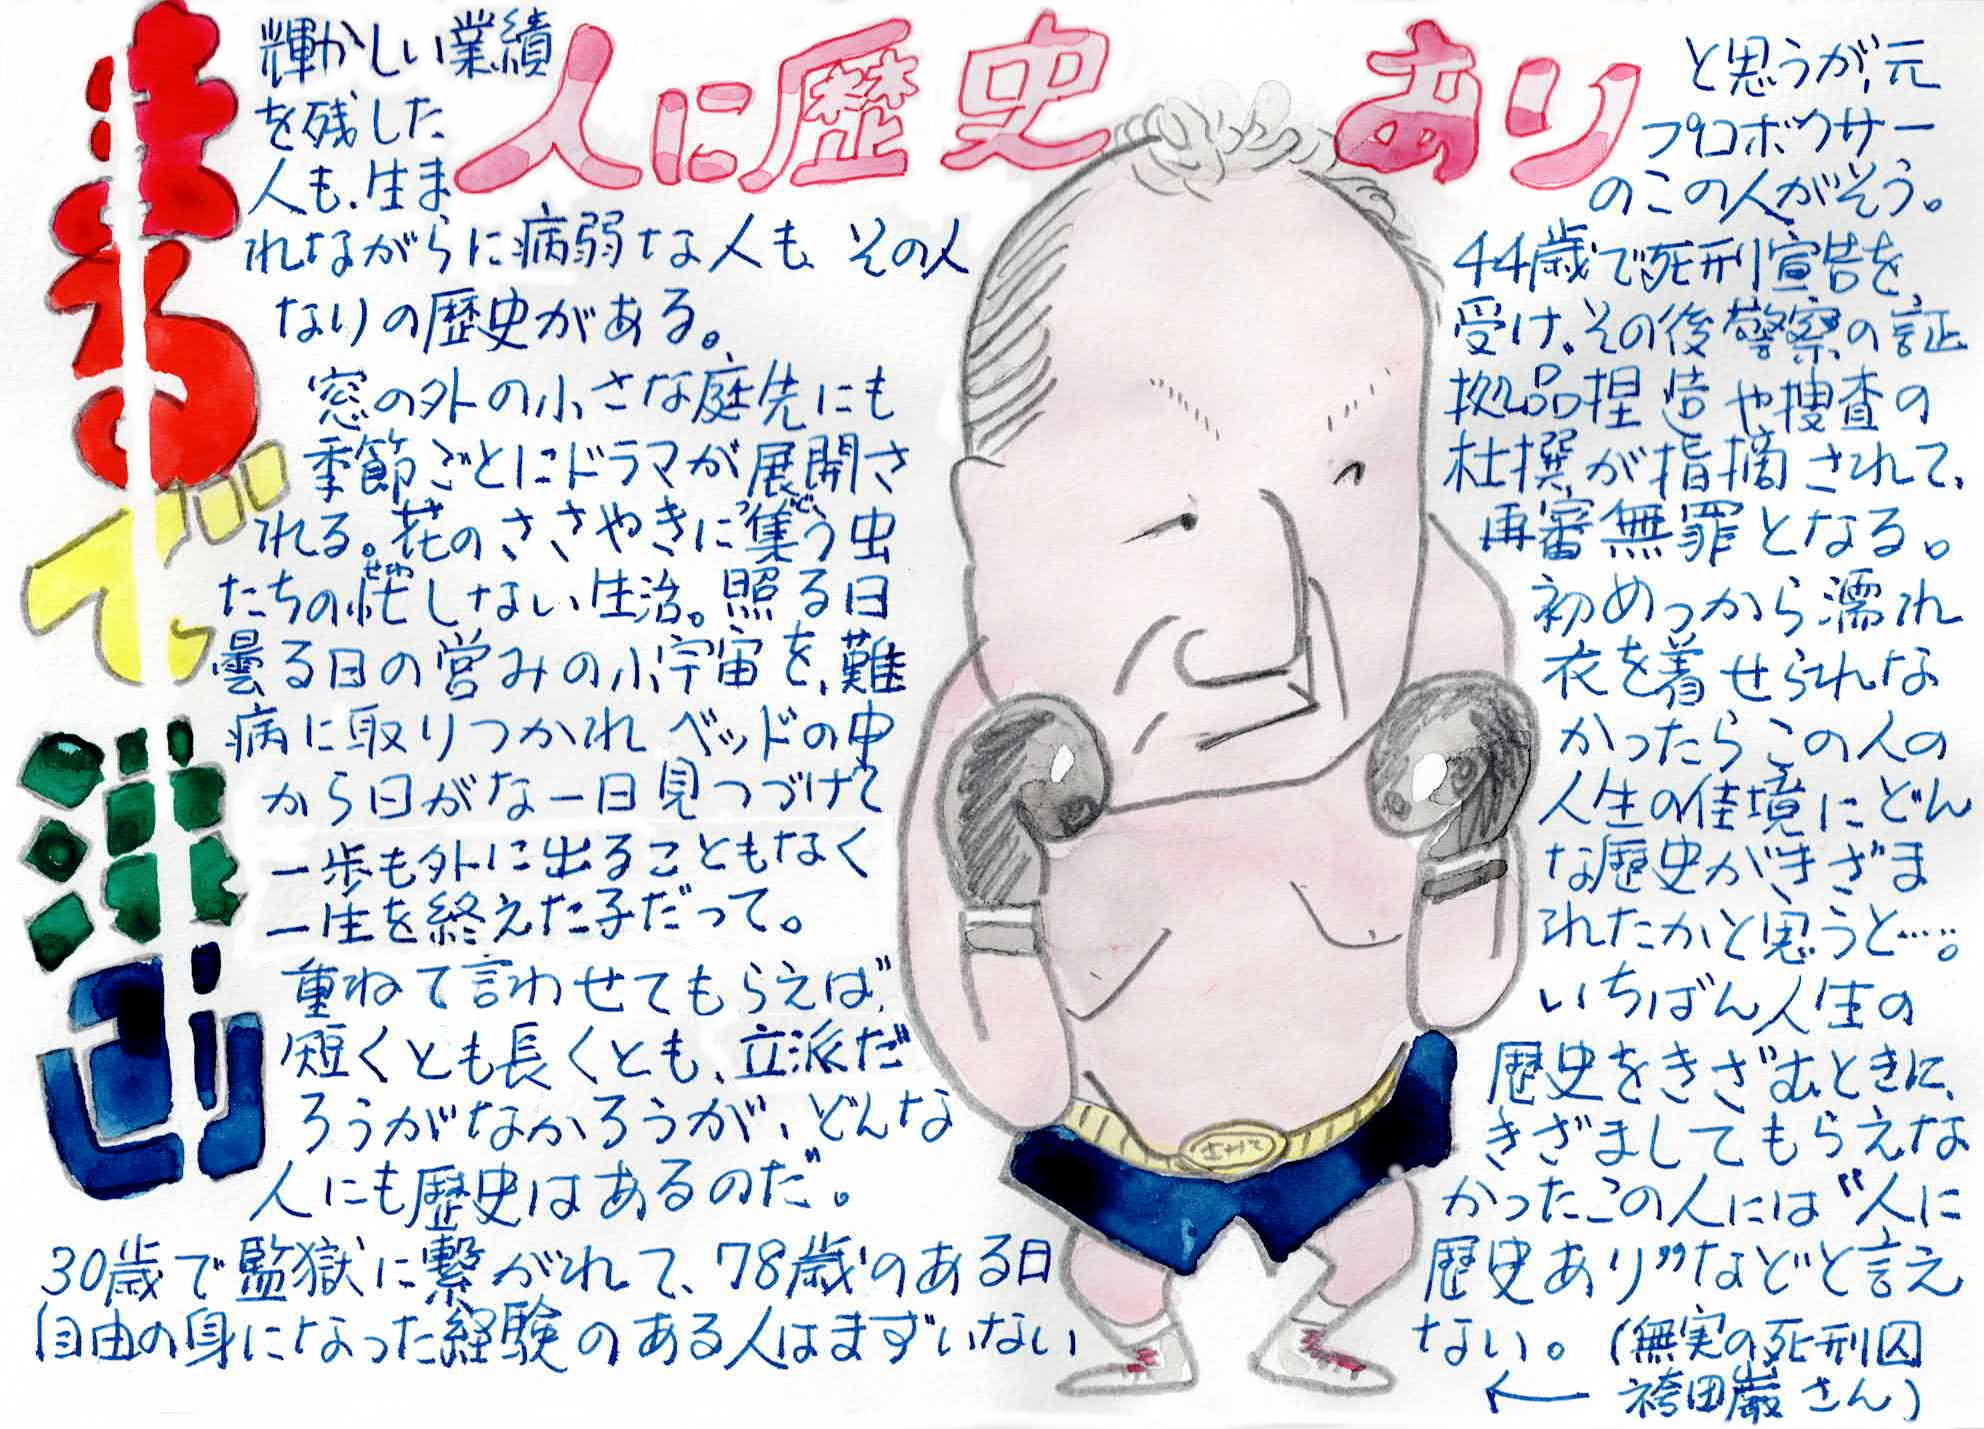 まるで漫画
人に歴史あり
輝かしい業績
を残した
人も、生ま
れながらに病弱な人も、その人
なりの歴史がある。
窓の外の小さな庭先にも
季節ごとにドラマが展開さ
れる。花のささやきに集う虫
たちの忙しない生活。照る日
曇る日の営みの小宇宙を、難
病に取りつかれベッドの中
から日がな一日見つづけて
一歩も外に出ることもなく
一生を終えた子だって。
重ねて言わせてもらえば、
短くとも長くとも、立派だ
ろうがなかろうが、どんな
人にも歴史はあるのだ。
30歳で監獄に繋がれて、78歳のある日
自由の身になった経験のある人はまずいない
と思うが、元
プロボクサー
のこの人がそう。
44歳で死刑宣告を
受け、その後警察の証
拠品捏造や捜査の
杜撰が指摘されて、
再審無罪となる。
初めっから濡れ
衣を着せられな
かったらこの人の
人生の佳境にどん
な歴史がきざま
れたかと思うと…。
いちばん人生の
歴史をきざむときに、
きざましてもらえな
かったこの人には“人に
歴史あり”などと言え
ない。(無実の死刑囚
← 袴田巌さん)